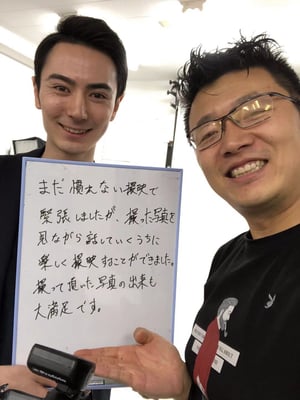 まだ慣れない撮映で
緊張しましたが、撮った写真を
見ながら話していくうちに
楽しく撮映することができました。
撮って頂いた写真の出来も
大満足です。